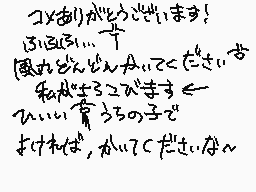 コメありがとうございます！
ふふふ...
どんどんかいてください
私がよろこびます←
ひぃぃ うちの子で
よければ,かいてくださいな〜